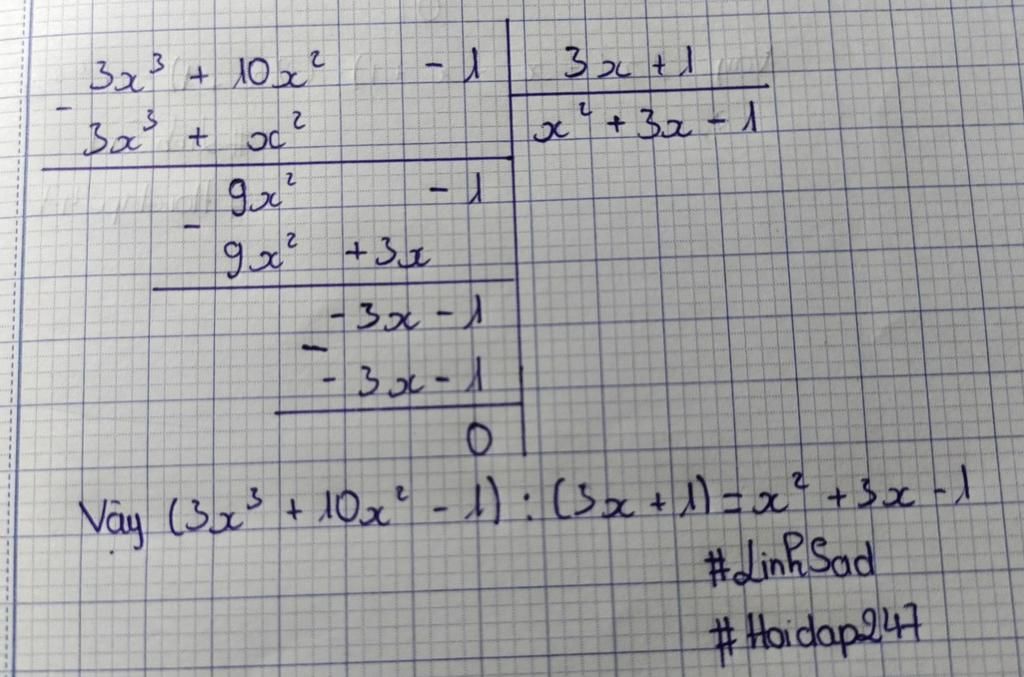 3x³ + 10x² - 1 | 3x + 1
-
3x³ + x² | x² + 3x - 1
9x² - 1
-
9x² + 3x
- 3x - 1
-
- 3x - 1
0
Vậy (3x³ + 10x² - 1) : (3x + 1) = x² + 3x - 1
#LinhSad
#Hoidap247